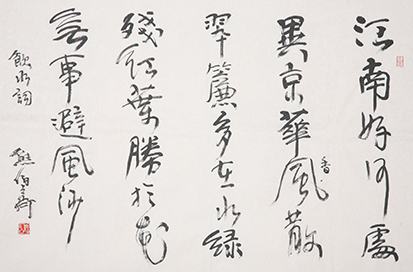 江南好何處
異京華風香散
翠簾多在水綠
殘紅葉勝於花
無事避風沙
飲水詞 熊伯齊